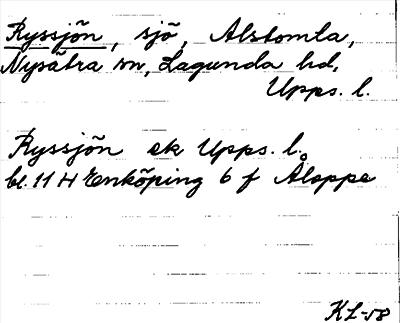 Ryssjön, sjö, Alstomla,
Nysätra sn, Lagunda hd,
Upps. l.
Ryssjön ek Upps. l.
bl. 11 H Enköping 6 f Åloppe
KL-58